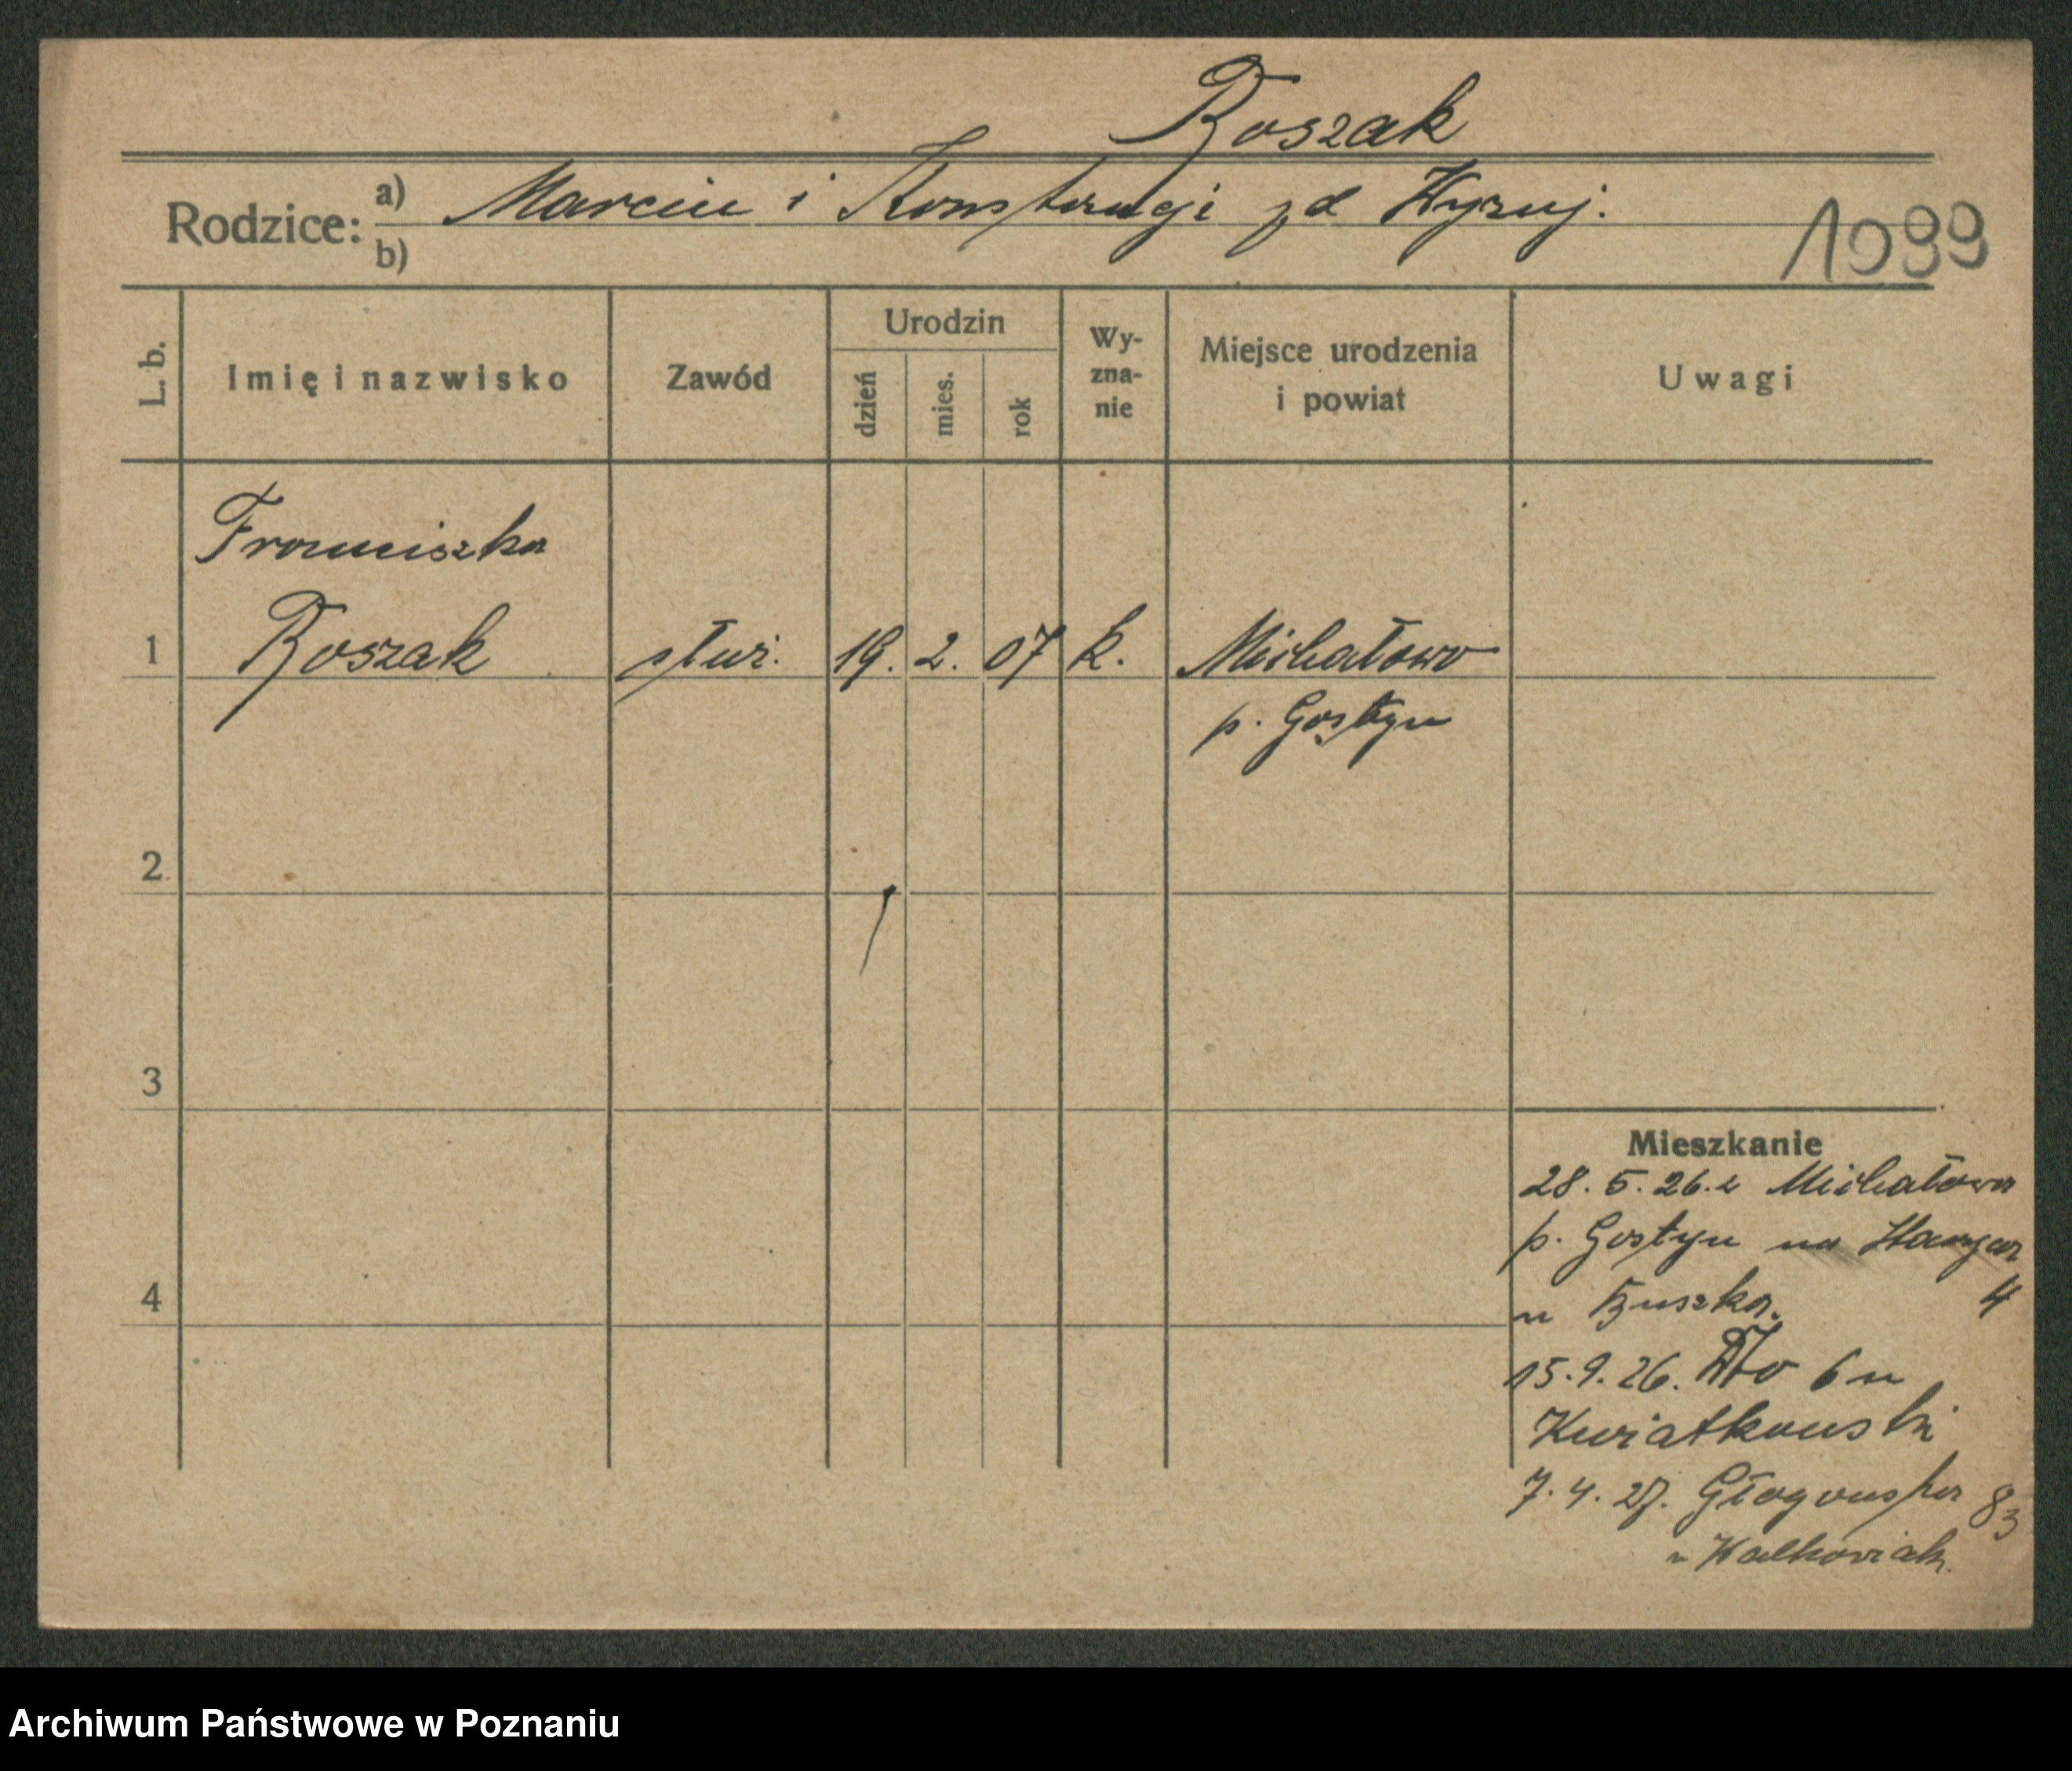 Roszak
Rodzice: a) Marcin i Konstancji zd Wyruj.
b)
1099
L. b. Imię i nazwisko Zawód Urodzin dzień mies. rok Wy-zna-nie Miejsce urodzenia i powiat Uwagi
Franciszka
1 Roszak służ. 19. 2. 07 k. Michałowo
p. Gostyn
2
3
Mieszkanie
28. 5. 26. z Michałowa
p. Gostyn na
4
u 4
15. 9. 26. Dto 6 u
Kwiatkowski
7. 4. 27. Głogowska 83
u Walkowiak.
Archiwum Państwowe w Poznaniu